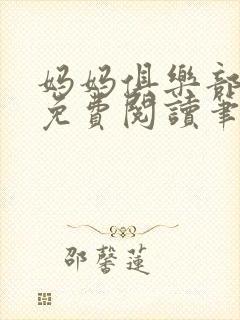 媽媽俱樂部
免費閱讀筆
邵馨蓮